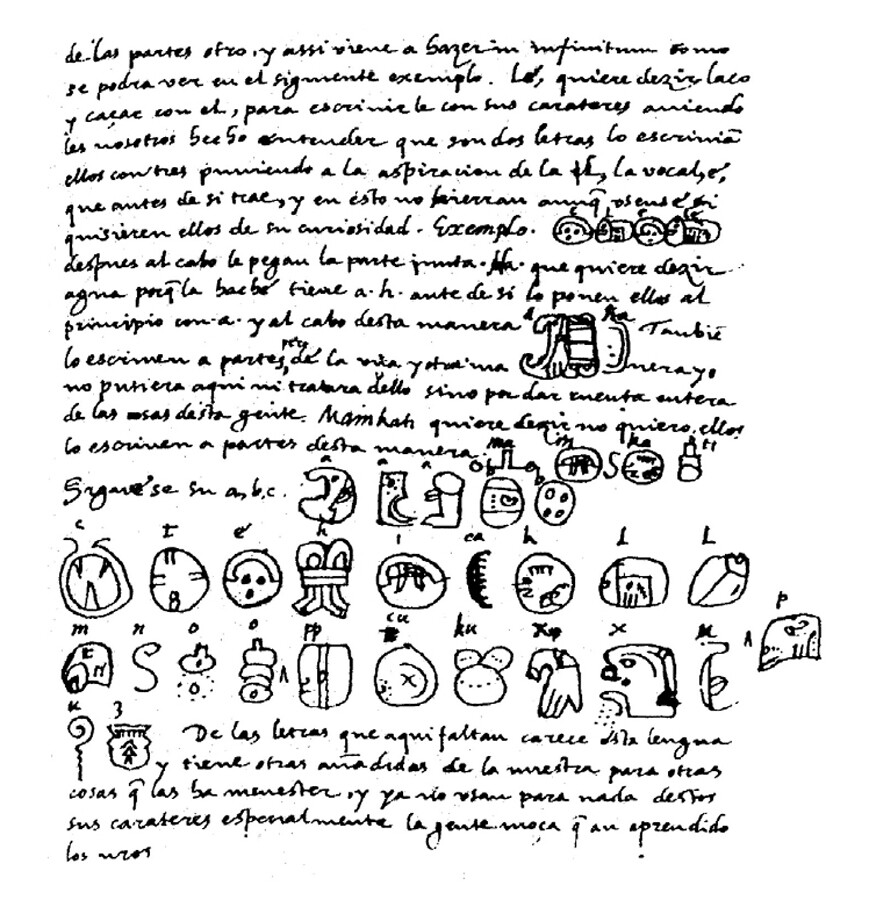 de las partes otro, y assi viene a hazer in infinitum como
se podra ver en el siguiente exemplo. Le, quiere dezir laço
y caçar con el, para escrivirle con sus carateres aviendo
les nosotros hecho entender que son dos letras lo escrivian
ellos con tres puniendo a la aspiracion de la l, la vocal, e,
que antes de si trae, y en esto no hierran aunq̃ usense si
quisieren ellos de su curiosidad. Exemplo. e l e le
despues al cabo le pegan la parte junta. Ha. que quiere dezir
agua porq̃ la hache tiene a. h. ante de si lo ponen ellos al
principio con a. y al cabo desta manera a ha Tambiē
lo escriven a partes, pero de la una y otra ma nera yo
no pusiera aqui ni tratara dello sino por dar cuenta entera
de las cosas desta gente. Mainkati quiere dezir no quiero, ellos
lo escriven a partes desta manera ma i n ka ti
Siguese su a, b, c. a a a b b
c t e h i ca k l l
m n o o pp cu ku x x u p
u z De las letras que aqui faltan carece esta lengua
y tiene otras añadidas de la nuestra para otras
cosas q̃ las ha menester, y ya no usan para nada destos
sus carateres especialmente la gente moça q̃ an aprendido
los nros